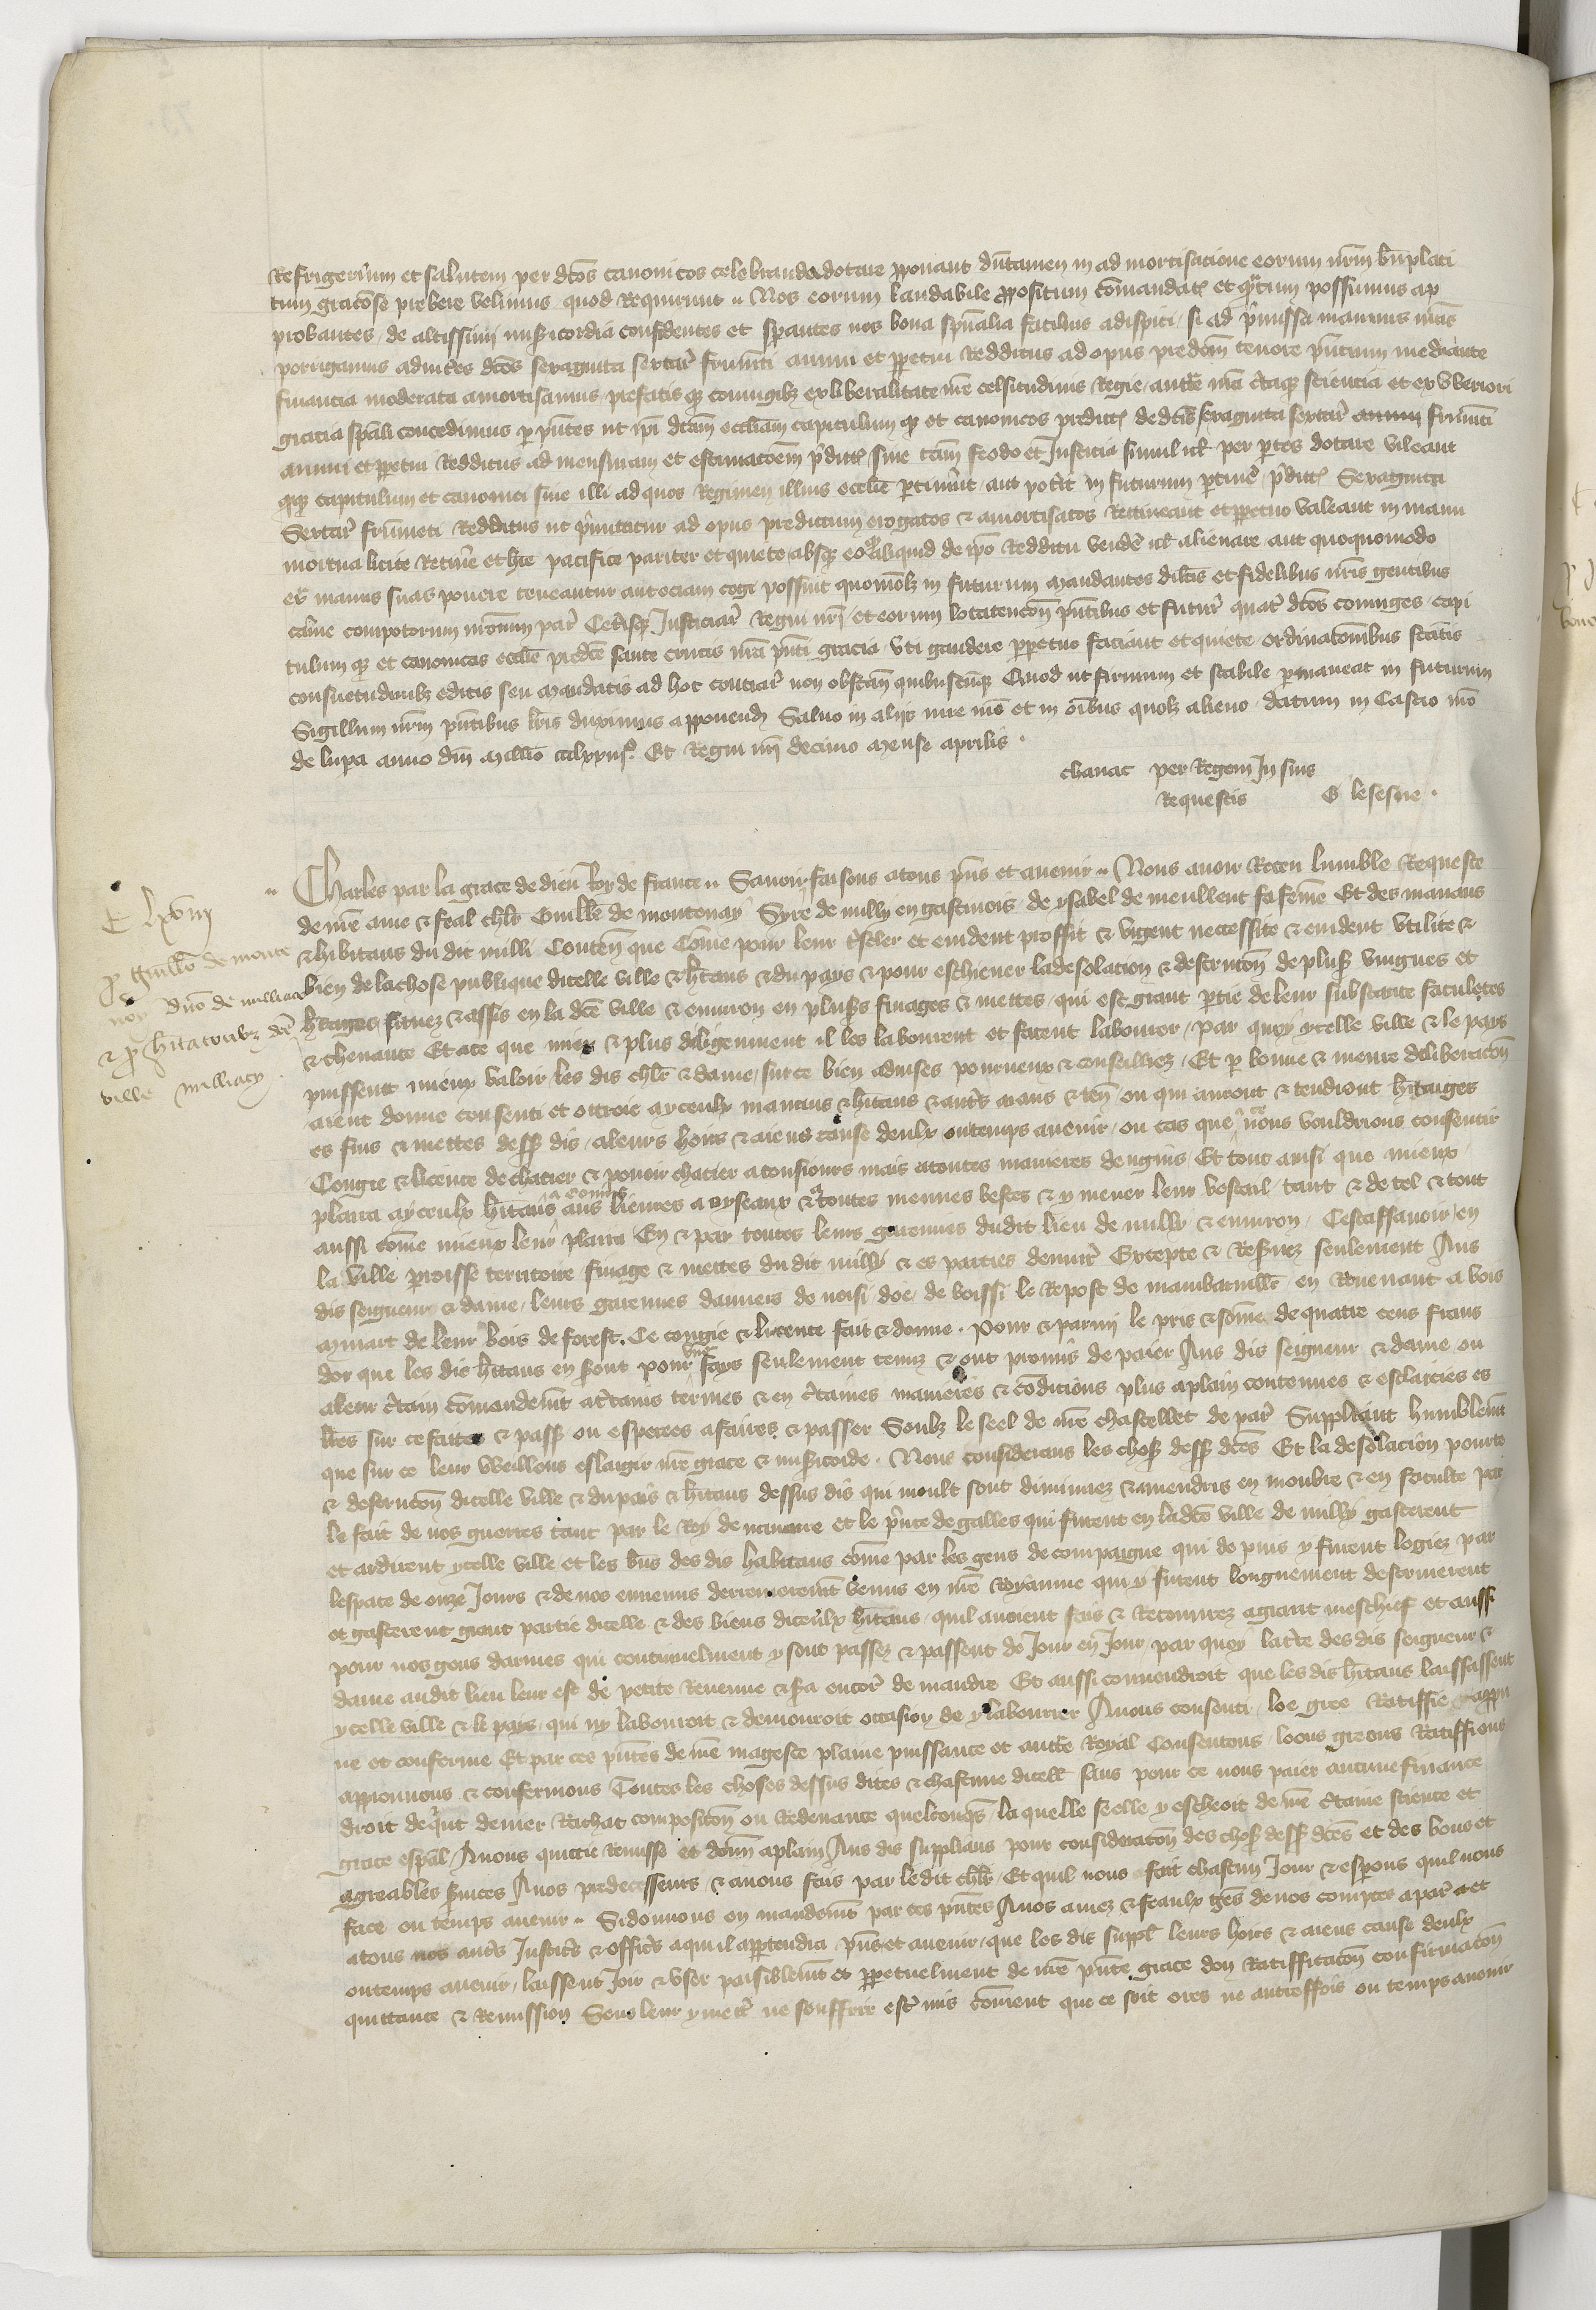 Refrigerium et salutem per dcos canonicos celebranda dotare pponant dutamen in ad mortisatione eorum nrm bnplaci
tum graciose prebere velimus quod Requirunt Nos eorum laudabile ppositum comandates et qtum possumus ap
probantes de altissimi misericordia confidentes et sperantes nos bona spualia facilius adispici si ad pmissa manus nras
porrigamus adiutrices dcos sexaginta sextar frumti annui et ppetui Redditus ad opus predcm tenore pntium mediante
financia moderata amortisamus prefatis que coniugibz ex liberalitate nre celsitudinis Regie auctte nra ctaque sciencia et ex vberiori
gracia spali concedimus p pntes ut ipi dcam eccliam capitulum que et canonicos predict de dcis sexaginta sextar frumti
annui et ppetui Redditus ad mensuram et estimacoem pdict sine tam feodo et Justicia simul ul per ptes dotare valeant
que capitulum et canonici siue illi ad quos Regimen illius ecclie ptinuit aut potit in futurum ptine pdict Sexaginta
Sextar frumenti Redditus ut pmittitur ad opus predictum erogatos & amortisatos Retineant et ppetuo valeant in manu
mortua licite Retine et hre pacifice pariter et quiete absque eo qd aliquid de ipo Redditu vende ul alienare aut quoquomodo
ex manus suas ponere teneantur aut eciam cogi possint quomolz in futurum Mandantes dilcis et fidelibus nris gentibus
camere compotorum nrorum par Cetisque Justiciar Regni nri et eorum locatenen pntibus et futur quat dcos coniuges capi
tulum que et canonicos ecclie predce sancte crucis nra pnti gracia vti gaudere ppetuo faciant et quiete ordinacombus statutis
consuetudinibz editis seu mandatis ad hoc contrar non obstan quibuscumque Quod ut firmum et stabile pmaneat in futurum
Sigillum nrm pntibus lris duximus apponend Saluo in alijs iure nro et in oibus quolz alieno datum in Castro nro
de lupa anno dni millo ccclxxiijo Et Regni nri decimo mense aprilis
chanac per Regem In suis
Requestis G lesesne
Charles par la grace de dieu Roy de france Sauoir faisons atous pns et auenir Nous auoir Receu lumble Requeste
E lxviij
de nre ame & feal chlr Guille de montenay Syre de milly en gastinois de ysabel de meullent sa feme Et des manans
p Guillo de monte
& hibitans du dit milli Conten que Come pour leur tseler et euident proffit & vrgent necessite & euident vtilite &
noy dno de milliaco
bien de lachose publique dicelle ville & htans & du pays & pour eschieuer ladesolation & destrucon de plus vingnes et
& p hitatoribz dce
htages situez & assis en la dce ville & enuiron en plus finages & mettes qui est grant ptie de leur substance facultes
ville milliacy
& cheuance Et ace que mieux & plus diligemment il les labourent et facent labourer par quoy ycelle ville & le pays
puissent mieux valoir les dis chlr & dame sur ce bien aduises pourueux & conseillez Et p bonne & meure deliberacon
aient donne consenti et ottroie aycculx manans & htans & autres aians & ten ou qui auront & tendront htages
es fins & mettes dess dis aleurs hoirs & aiens cause deulx ontemps auenir ou cas que nous vouldrions consentir
Congie & licence de chacier & pouoir chacier atousiours mais atoutes manieres dengins Et tout ainsi que mieux
plaira aycculx htans a connins aus lieures a oyseaux & a toutes menues bestes & y mener leur bestail tant & de tel & tout
aussi come mieux leur plaira En & par toutes leurs garennes dudit lieu de milly & enuiron Cestassauoir en
la ville proisse territoire finage & mettes du dit milly & es parties denuir Excepte & Reseruez seulement Aus
dis seigneur & dame leurs garennes dauuers de noisi doe de boissi le Repost de maubaruille en Reuenant a bois
aymart de leur bois de forest Ce congie & licence fait & donne Pour & parmi le pris & some de quatre cens frans
dor que les dis htans en sont pour vne foys seulement tenuz & ont promis de paier Aus dis seigneur & dame ou
aleur ctain comandement actains termes & en ctaines manieres & condicions plus aplain contenues & esclarcies es
lres sur ce faites & pass ou esperees afaires & passer Soubz le seel de nre chastellet de par Suppliant humblemt
que sur ce leur Vueillons eslargir nre grace & misicorde Nous considerans les choses dess dces Et la desolacion pourte
& destrucon dicelle ville & dupais & htans dessus dis qui moult sont diminuez & amendris en moubre & en faculte par
le fait de nos guerres tant par le Roy de nauarre et le pince de galles qui furent en ladce ville de milly gasterent
et ardirent ycelle ville et les bns des dis habitans come par les gens de compaigne qui de puis y furent logiez par
lespace de onze Jours & de nos ennemis derrenierement venus en nre Royaume qui y furent longuement destruierent
et gasterent grant partie dicelle & des biens diceulx htans quil auoient fais & Recouurez agrant meschief et aussi
pour nos gens darmes qui continuelment y sont passez & passent de Jour en Jour par quoy latre des dis seigneur &
dame audit lieu leur est de petite Reuenue & sera encor de maindre Et aussi conuendroit que les dis htans laissassent
ycelle ville & le pays qui ny labouroit & demouroit occasion de y labourer Auons consenti loe gree Ratiffie & appu
ue et conferme Et par ces pntes de nre mageste plaine puissance et auctte Royal Consentons loons greons Ratiffions
approuuons & confermons Toutes les choses dessus dites & chascune dicell sans pour ce nous paier aucune finance
droit dequint denier Rachat composicon ou Redeuance quelconque laquelle se elle y escheoit de nre ctaine science et
grace espal Auons quittie Remise et donne aplain Aus dis supplians pour consideracon des choses dess dces et des bons et
agreables suices Anos predecessents & anous fais par ledit chlr Et quil nous fait chascun Jour & espons quil nous
face ou temps auenir Sidonnons en mandemt par ces pntes Anos amez & feaulx gens de nos comptes apar et
atous nos autres Justices & offices aquil appartendra pns et auenir que les dis suppl leurs hoirs & aiens cause deulx
ontemps auenir laissent Joir & vser paisiblemt et ppetuelment de nre pnte grace don Ratifficacon confirmacon
quittance & Remission Sens leur y mett ne souffrir est mis coment que ce soit ores ne autreffois ou temps auenir